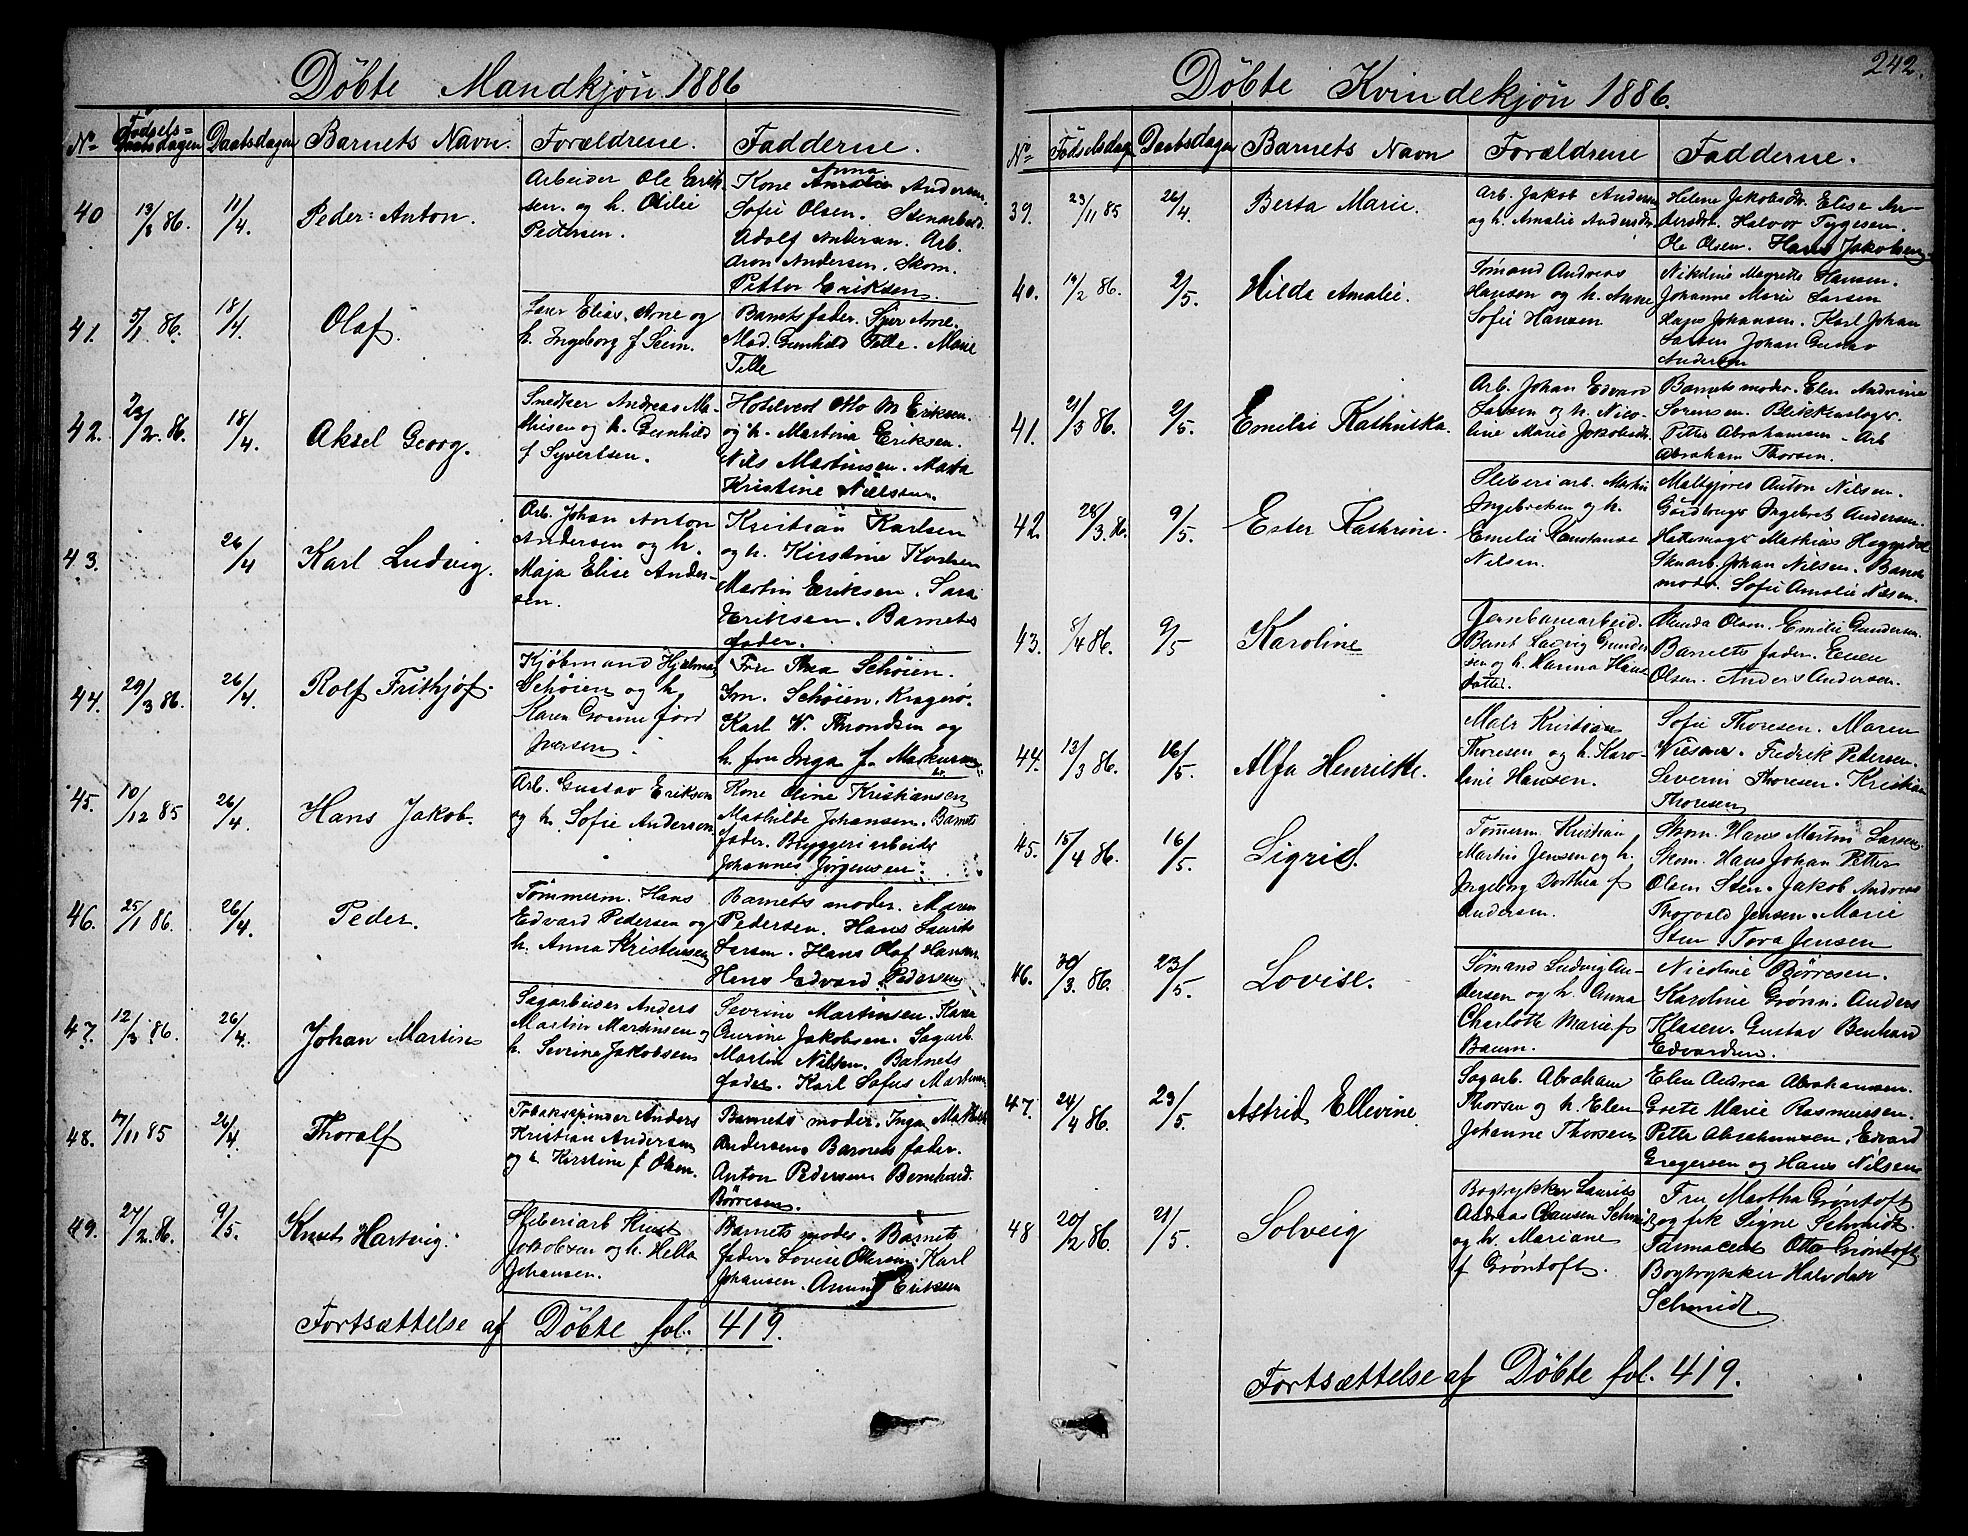 Döbte Mandkjön 1886
No
Födsels=
dagen
Daabsdagen
Barnets Navn.
Forældrene.
Fadderne.
40
13/3 86.
11/4.
Peder Anton.
Arbeider Ole Erik
sen. og h. Otilie
Pedersen.
Kone Anna Andersen.
Sofie Olsen.
Adolf Andersen. Arb.
Aron Andersen. Skom.
Petter Eriksen.
41.
5/1 86.
18/4
Olaf.
Elias Arne og
h. Ingeborg f Seim.
Barnets fader.
Mad. Gunhild Telle. Marie
Telle
42.
23/2. 86.
18/4.
Aksel Georg.
Snedker Andreas Ma-
thisen og h. Gunhild
f Syvertsen.
Hotelvert Otto M Eriksen.
og h. Martina Eriksen.
Nils Martinsen. Marta
Kristine Nielsen.
43.
26/4
Karl Ludvig.
Arb. Johan Anton
Andersen og h.
Maja Elise Ander-
sen.
Kristian Karlsen
og h. Kirstine Karlsen
Martin Eriksen. Sara
Eriksen. Barnets
fader.
44.
29/3 86.
26/4.
Rolf Frithjof.
Kjöbmand Hjalmar
Schöien og h.
Karen
Iversen
Fru Thea Schöien.
Schöien. Kragerö.
Karl W. Throndsen og
h. fru Inga f. Markussen.
45.
10/12 85
26/4.
Hans Jakob.
Arb. Gustav Eriksen
og h. Sofie Andersen.
Kone Oline Kristiansen
Mathilde Johansen. Barnets
fader. Bryggeriarbeider
Johannes Jörgensen.
46.
25/1 86.
26/4.
Peder.
Tömmerm. Hans
Edvard Pedersen og
h. Anna Kristensen
Barnets moder. Maren
Pedersen. Hans Laurits
Larsen. Hans Olaf Hansen
Hans Edvard Pedersen
47.
12/3 86.
26/4.
Johan Martin
Sagarbeider Anders
Martin Martinsen og
h. Sevrine Jakobsen
Sevrine Martinsen. Karen
Gurine Jakobsen. Sagarb.
Martin Nilsen. Barnets
fader. Karl Sofus Martinsen
48.
17/11 85
26/4.
Thoralf
Tobakspinder Anders
Kristian Andersen
og h. Kirstine f Olsen.
Barnets moder. Inga Mathilde
Andersen. Barnets fader.
Anton Pedersen. Bernhard.
Börresen.
49.
27/2. 86.
9/5.
Knut Hartvig.
Sliberiarb Knut
Jakobsen og h. Hella
Johansen.
Barnets moder. Barnets
fader. Lovise Karl
Johansen. Eriksen
Fortsættelse af Döbte fol. 419.
242.
Döbte Kvindekjön 1886.
No
Födselsdag
Daabsdagen
Barnets Navn
Forældrene
Fadderne.
39.
23/11 85
26/4.
Berta Marie.
Arb. Jakob Andersen
og h. Amalie Andersdtr
Helene Jakobsdtr. Elise An-
dersdtr. Halvor Tygesen.
Ole Olsen. Hans Jakobsen
40.
14/2 86.
2/5.
Hilda Amalie.
Sömand Andreas
Hansen og h. Anne
Sofie Hansen
Nikoline Magrette Hansen.
Johanne Marie Larsen
Hans Johansen. Karl Johan
Larsen Johan Gustav
Andersen
41.
21/3 86.
2/5.
Emilie Kathinka.
Arb. Johan Edvard
Larsen og h. Nico-
line Marie Jakobsdtr.
Barnets moder. Elen Andrine
Sorensen. Blikkenslager
Petter Abrahamsen - Arb
Abraham Thorsen.
42.
28/3 86.
9/5.
Ester Kathrine.
Sliberiarb. Martin
Ingebretsen og h.
Emilie Konstanse
Nilsen.
Maltgjörer Anton Nilsen.
Gårdbrugr Ingebret Andersen.
Hattemagr Mathias
Skoarb. Johan Nilsen. Barnets
moder. Sofie Amalie Nilsen.
43.
8/4 86.
9/5
Karoline
Jernbanearbeid.
Bernt Gunder
sen og h. Hanna Hans
datter.
Olsen. Emilie Gundersen
Barnets fader. Even
Olsen. Anders Andersen.
44.
13/3 86.
16/5.
Alfa Henriette.
Maler Kristian
Thoresen og h. Karo-
line Hansen.
Sofie Thoresen. Maren
Fredrik Pedersen.
Severin Thoresen. Kristian
Thoresen
45.
15/4 86.
16/5.
Sigrid.
Tömerm. Kristian
Martin Jensen og h.
Ingeborg Dorthea f
Andersen.
Skom. Hans Martin Larsen
Skom. Hans Johan Petter
Olsen Sten. Jakob Andreas
Thorvald Jensen. Marie
Sten Tora Jensen
46.
30/3. 86.
23/5.
Lovise.
Sömand Ludvig An-
dersen og h. Anna
Charlotte Marie f
Baum.
Nicoline Börresen.
Karoline Grönn. Anders
Klasen. Gustav Bernhard
Edvardsen.
47.
24/4 86.
23/5.
Astrid Ellevine.
Sagarb. Abraham
Thorsen og h. Elen
Johanne Thorsen
Elen Andrea Abrahamsen.
Grete Marie Rasmussen.
Petter Abrahamsen. Edvard
Gregersen og Hans Nilsen
48
20/2 86.
21/5.
Solveig
Bogtrykker Laurits
Andreas Clausen Schmidt
og h. Mariane
f Gröntoft.
Fru Martha Gröntoft
og frk Signe Schmidt.
Farmaceut Otto Gröntoft
Bogtrykker Halvdan
Schmidt
Fortsættelse af Döbte fol. 419.